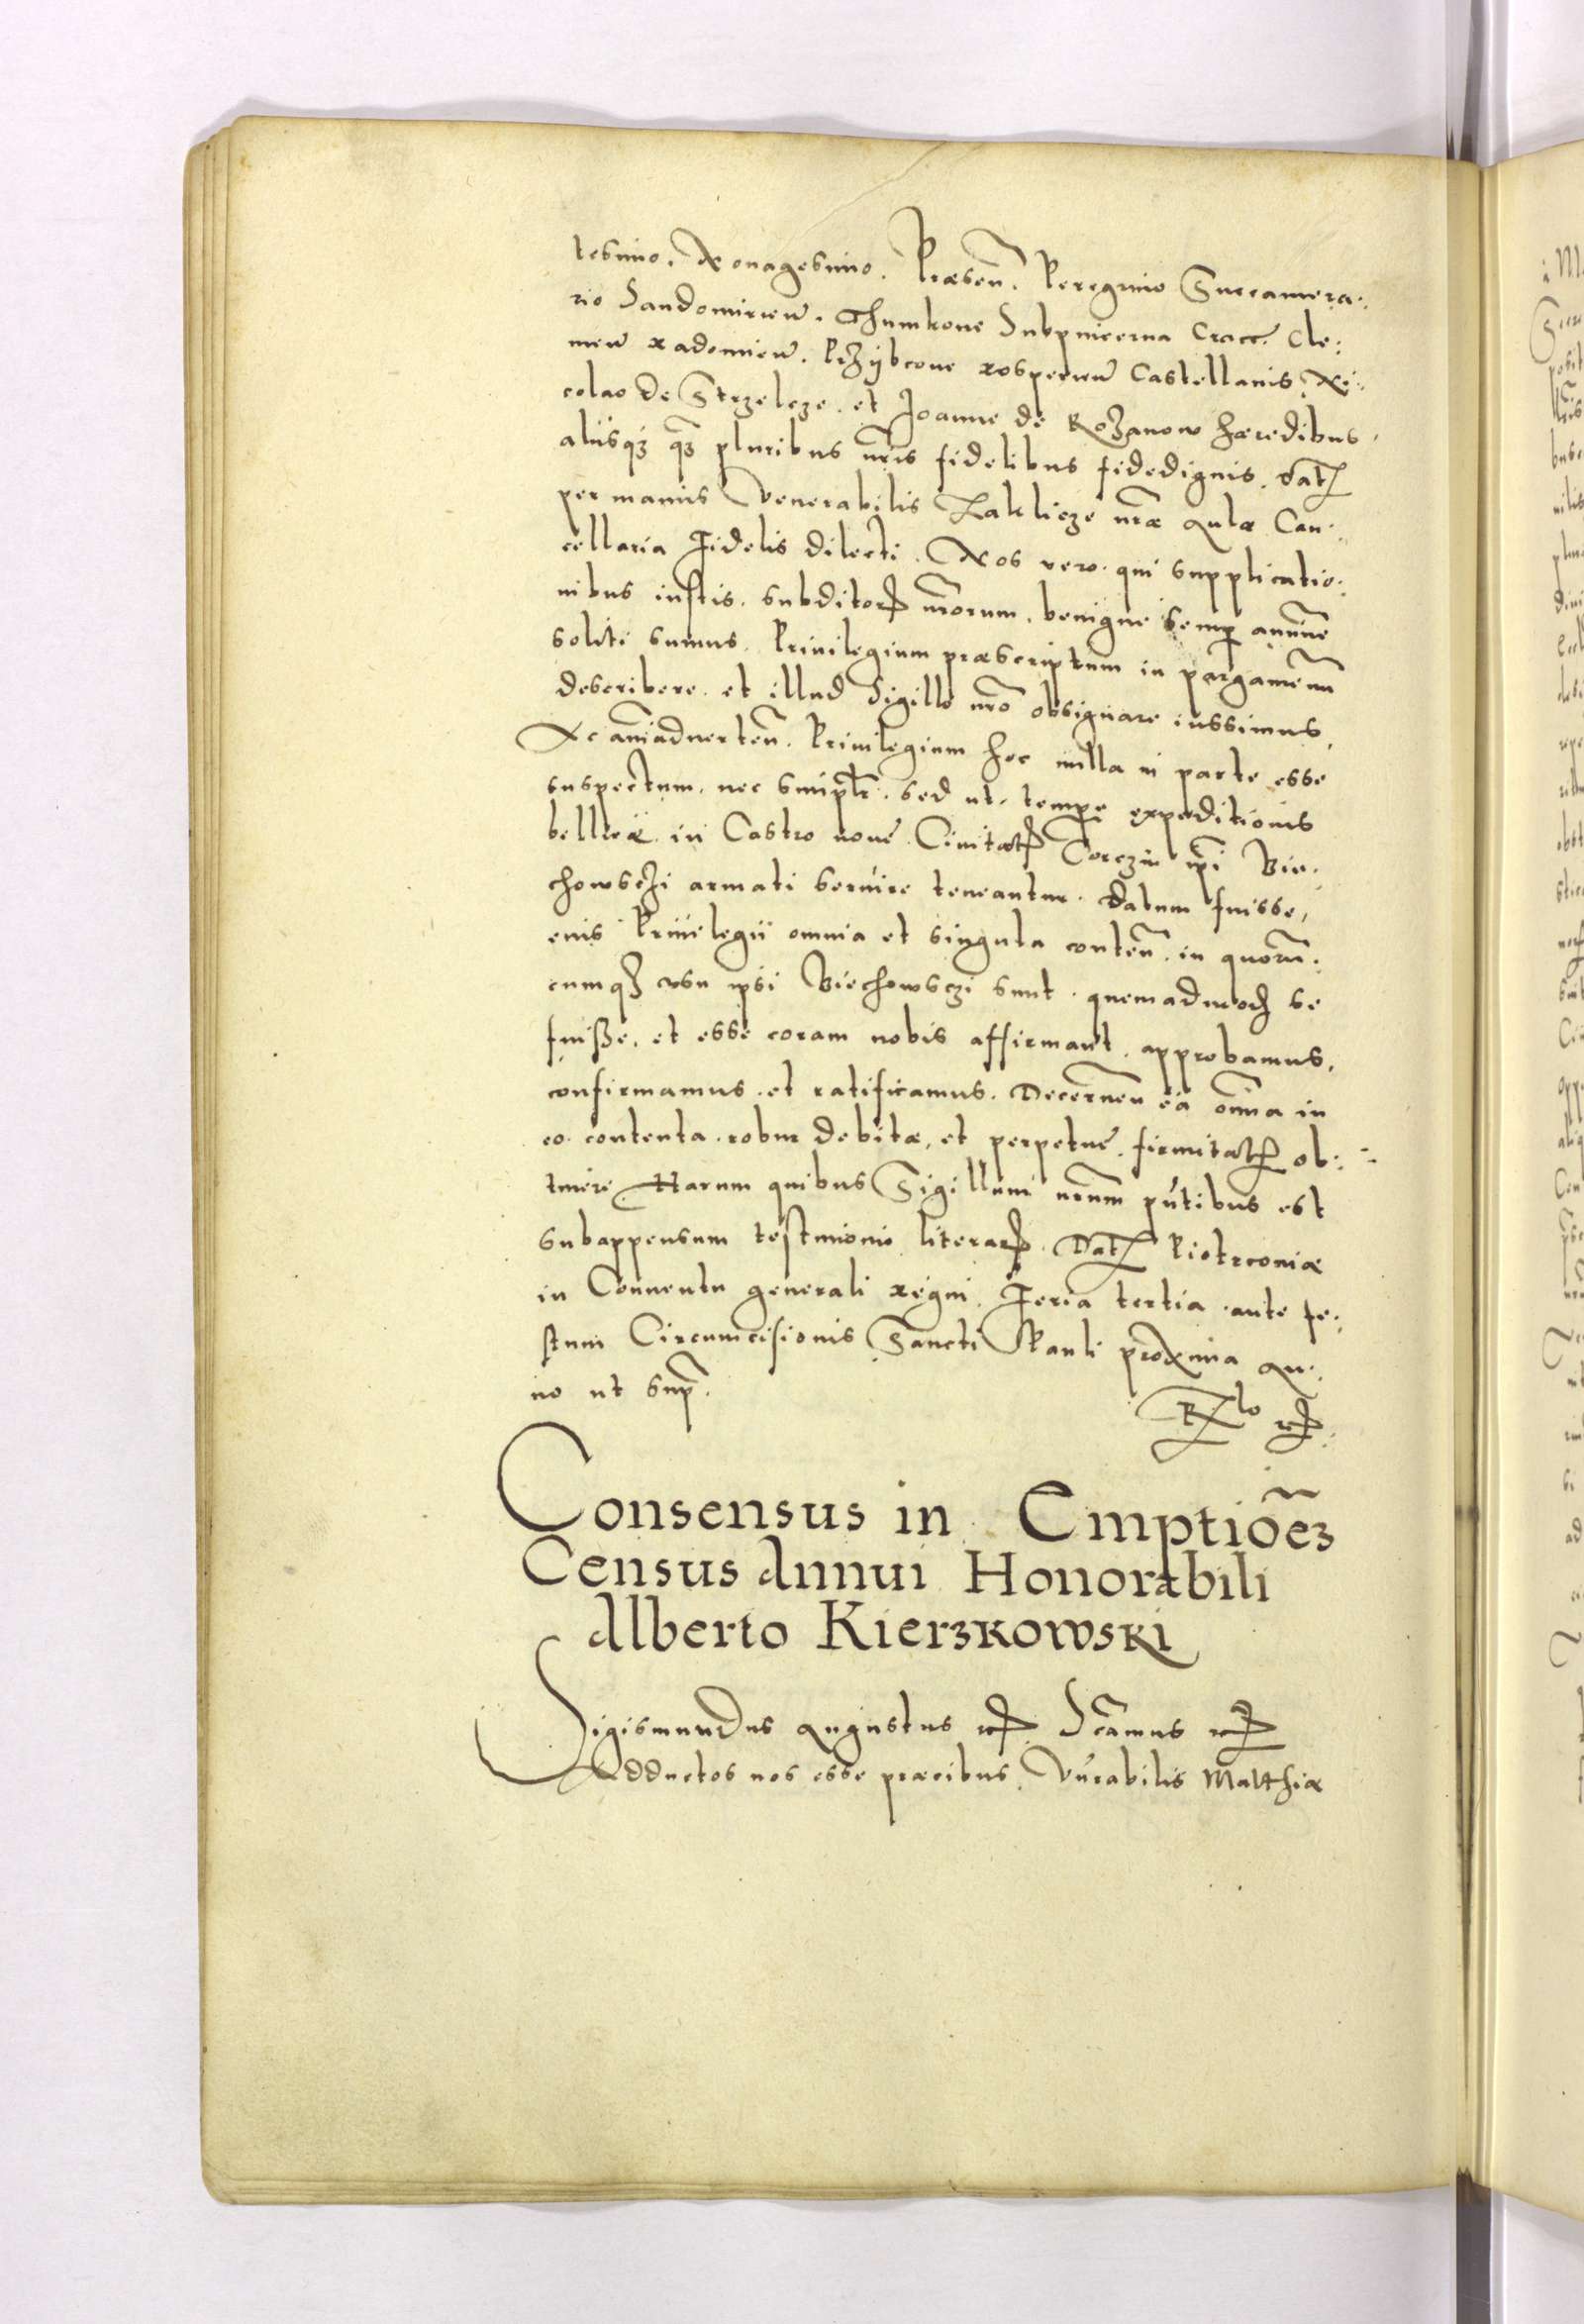 tesimo. Nonagesimo. Praesen͂. Peregrino Succamera:
rio Sandomirien͂. Thumkone Subpincerna Cracc. Cle:
men͂ Radomien͂. Przÿbcone Rosperien͂ Castellanis Ni:
colao de Strzelcze. et Joanne de Rozanow haeredibus.
aliisqꝫ qꝫ pluribus nr͂is fidelibus fidedignis. Datꝭ
per manus Venerabilis Zaklicze nr͂ae Aulae Can:
cellaria Fidelis dilecti. Nos vero. qui supplicatio:
nibus iustis. subditorꝝ nr͂orum. benigne semꝑ annuere
soliti sumus. Privilegium praescriptum in pargamenũ
describere. et illud Sigillo nr͂o obsignare iussimus.
Ac am͂iadverten͂. Privilegium hoc nulla in parte esse
suspectum. nec simplr͂. sed ut. tempe expeditionis
bellicae. in Castro novae Civitatꝭ Corczin ip͂i Vie:
chowsczi armati servire teneantur. Datum fuisse,
euis Privilegii omnia et singula conten͂. in quorũ:
cumqꝫ usu ipsi Viechowsczi sunt. quemadmodꝫ se
fuiſse. et esse coram nobis affirmant. approbamus,
confirmamus. et ratificamus. Decernen͂ ea om͂ia in
eo. contenta. robur debitae, et perpetuae. firmitatꝭ ob:
tinere. Harum quibus Sigillum nr͂um pn͂tibus est
subappensum testimonio literarꝝ. Datꝭ Piotrconiae
in Conventu generali Regni. Feria tertia. ante fe:
stum Circumcisionis Sancti Pauli proxima An:
no ut sup͂.
Consensus in Emptioẽꝫ
Census Annui Honorabili
Alberto Kierzkowski
Sigismundus Augustus ꝛc Sc͂amus ꝛc
Adductos nos esse praecibus. Vn͂rabilis Matthiae